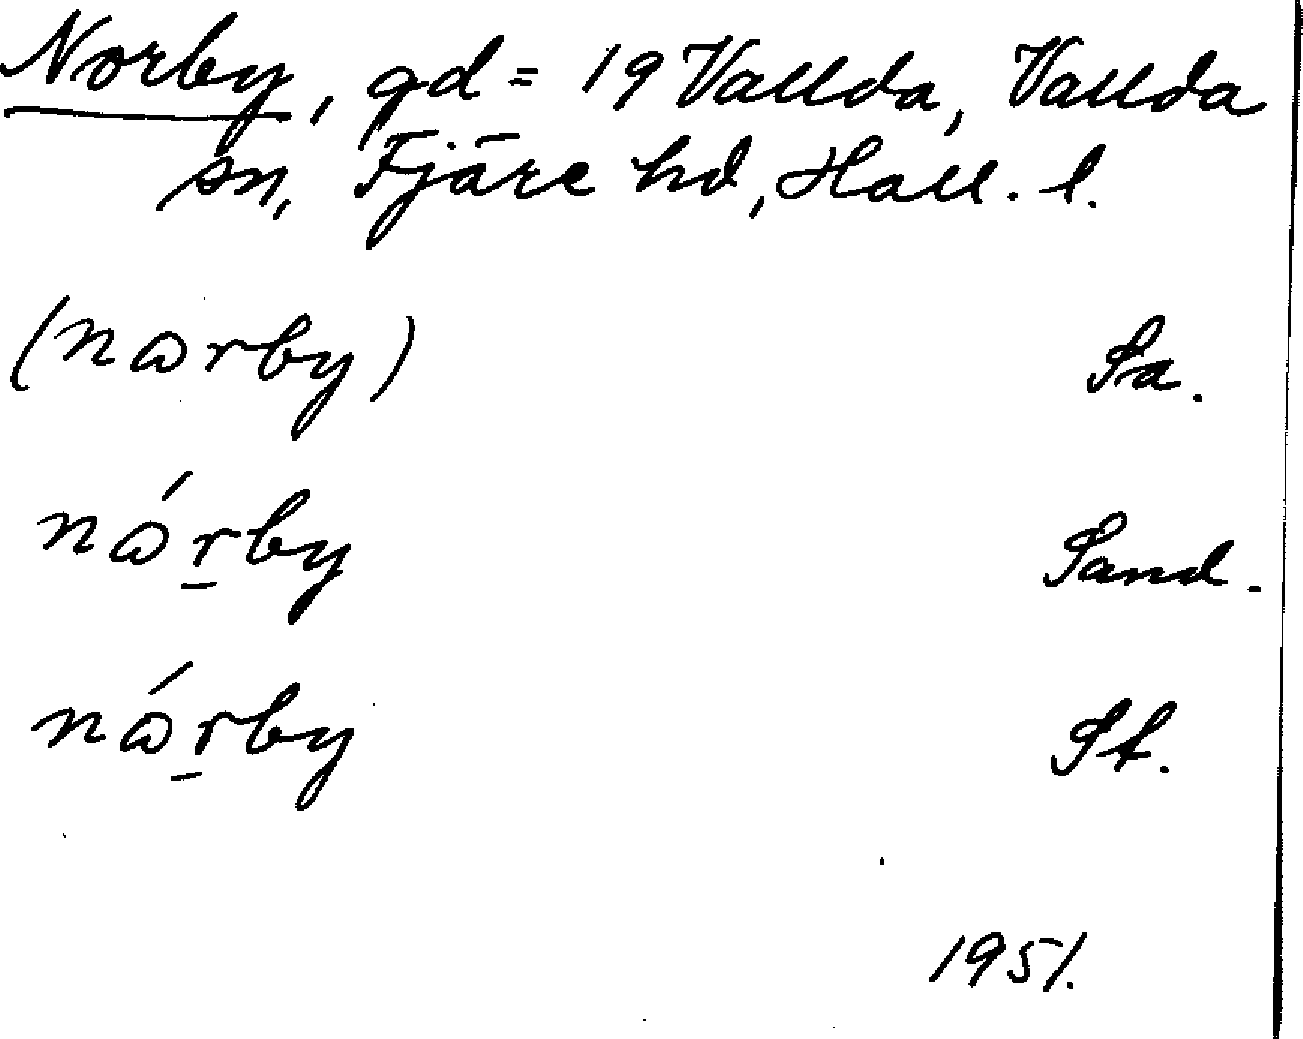 Norby, gd = 19 Vallda, Vallda
sn, Fjäre hd, Hall. l.
(nɷrby) Sa.
nɷ́r̠by Sand.
nɷ́r̠by St.
1951.